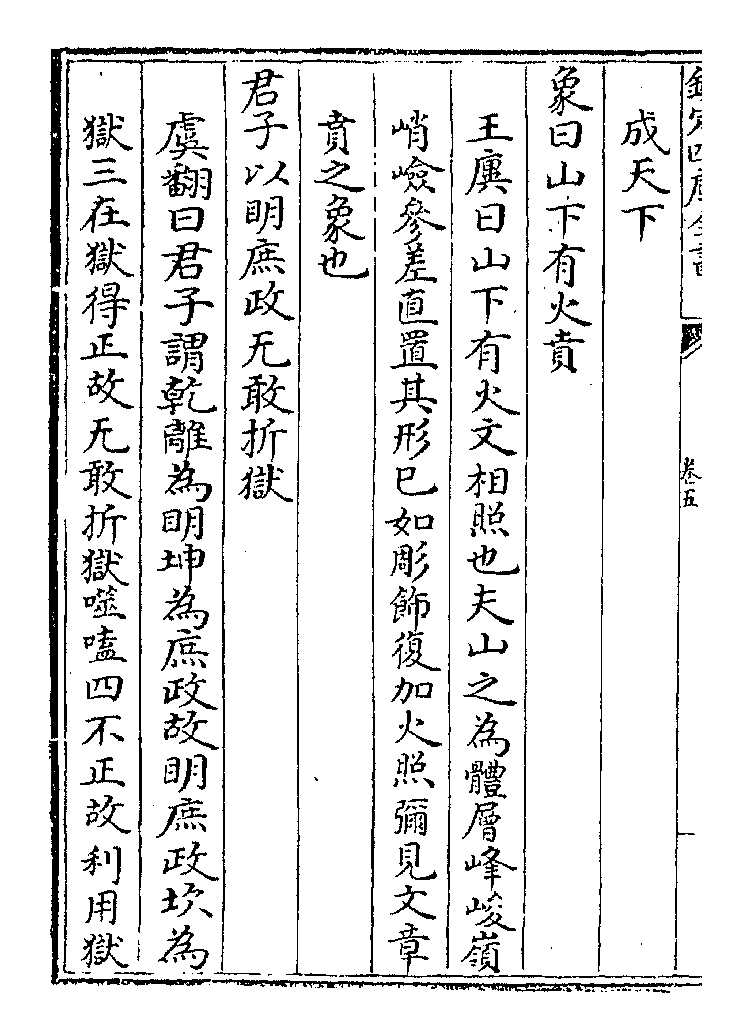 欽定四庫全書
卷五
成天下
象曰山下有火賁
王廙曰山下有火文相照也夫山之為體層峰峻嶺
峭嶮參差直置其形已如彫飾復加火照彌見文章
賁之象也
君子以明庶政无敢折獄
虞翻曰君子謂乾離為明坤為庶政故明庶政坎為
獄三在獄得正故无敢折獄噬嗑四不正故利用獄